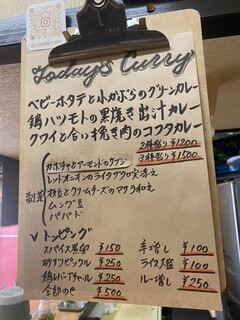 Today's Curry
ベビーホタテと小かぶらのグリーンカレー
鶏ハツモトの黒焼き出汁カレー
クワイと合い挽き肉のコフタカレー
2種盛り ¥1200
3種盛り ¥1500
副菜
カボチャとアーモンドのサブジ
レッドオニオンのライタ
枝豆とクリームチーズのマサラ和え
ムング豆
パパド
トッピング
スパイス煮卵 ¥150
砂ずりピックル ¥250
鶏レバーアチャール ¥250
全部のせ ¥500
副菜増し ¥100
ライス大盛 ¥100
ルー増し ¥250